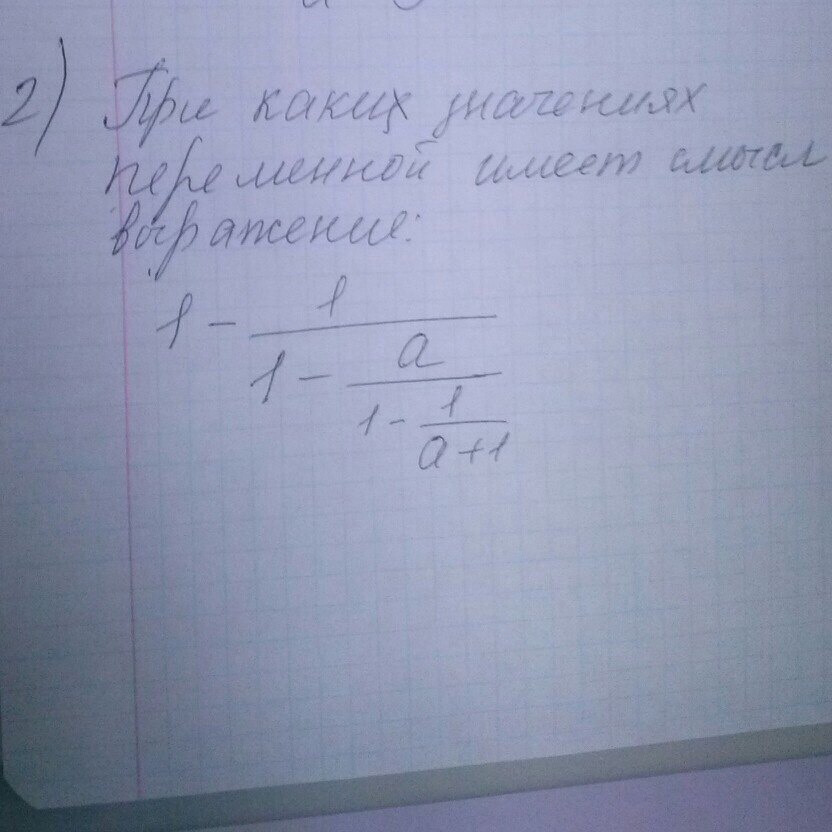 2) При каких значениях
переменной имеет смысл
выражение:
1 - 1
1 - a
1 - 1
a + 1